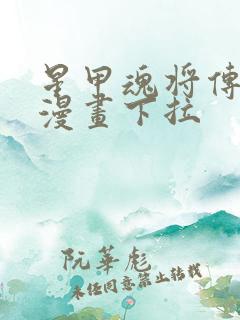 星甲魂将傳
漫畫下拉
阮華彪
未経同意禁止轉載